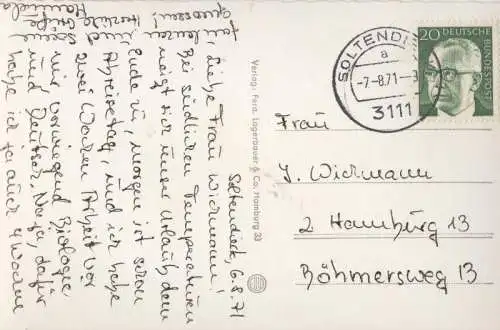 Soltendieck, 6.8.71
Liebe Frau Wichmann!
Bei südlichen Temperaturen
neigt sich unser Urlaub dem
Ende zu, morgen ist schon
Abreisetag, und ich habe
zwei Wochen Arbeit vor
mir, vorwiegend Biologie
und Deutsch. Na ja, dafür
habe ich ja auch 4 Wochen
genossen!
Herzliche
Grüße
Verlag: Ferd. Lagerbauer & Co. Hamburg 33
SOLTENDI
a
-7-8.71-
3111
20
DEUTSCHE
BUNDESPOST
Frau
J. Wichmann
2 Hamburg 13
Böhmersweg 13